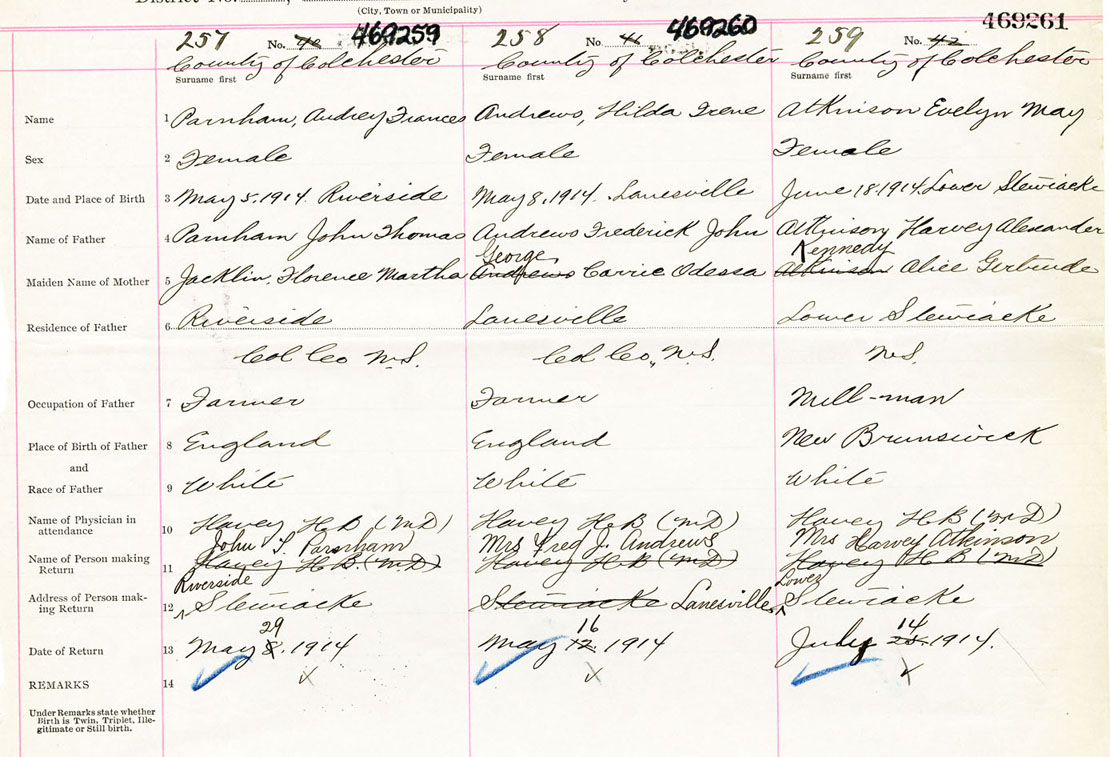 District No.
(City, Town or Municipality)
257 No. 40 469259 258 No 41 469260 259 No. 42 469261
County of Colchester County of Colchester County of Colchester
Surname first Surname first Surname first
Name 1 Parnham, Audrey Frances Andrews, Hilda Irene Atkinson Evelyn May
Sex 2 Female Female Female
Date and Place of Birth 3 May 5. 1914. Riverside May 8, 1914. Lanesville June 18. 1914. Lower Stewiacke
Name of Father 4 Parnham John Thomas Andrews Frederick John Atkinson Harvey Alexander
George Kennedy
Maiden Name of Mother 5 Jacklin, Florence Martha Andrews Carrie Odessa Atkinson Alice Gertrude
Residence of Father 6 Riverside Lanesville Lower Stewiacke
Col Co N.S. Col Co., N.S. N.S.
Occupation of Father 7 Farmer Farmer Mill-man
Place of Birth of Father 8 England England New Brunswick
and
Race of Father 9 White White White
Name of Physician in
attendance 10 Havey H B (M D) Havey H. B (M D) Havey H B (M D)
John T. Parnham Mrs Fred J. Andrews Mrs Harvey Atkinson
Name of Person making
Return 11 Havey H B (M D) Havey H B (M D) Havey H B (M D)
Riverside Lower
Address of Person mak-
ing Return 12 Stewiacke Stewiacke Lanesville Stewiacke
29 16 14
Date of Return 13 May 8. 1914 May 12. 1914 July 1914.
REMARKS 14 x x x
Under Remarks state whether
Birth is Twin, Triplet, Ille-
gitimate or Still birth.